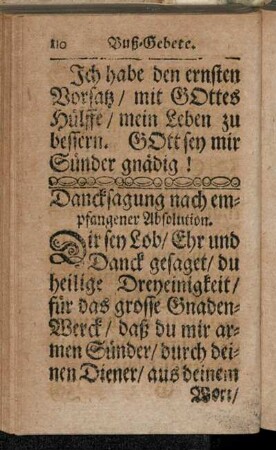 110 Buß-Gebete.
Ich habe den ernsten
Vorsatz / mit GOttes
Hülffe / mein Leben zu
bessern. GOtt sey mir
Sünder gnädig !
Dancksagung nach em-
pfangener Absolution.
Dir sey Lob / Ehr und
Danck gesaget / du
heilige Dreyeinigkeit /
für das grosse Gnaden-
Werck / daß du mir ar-
men Sünder / durch dei-
nen Diener / aus deinem
Wort /